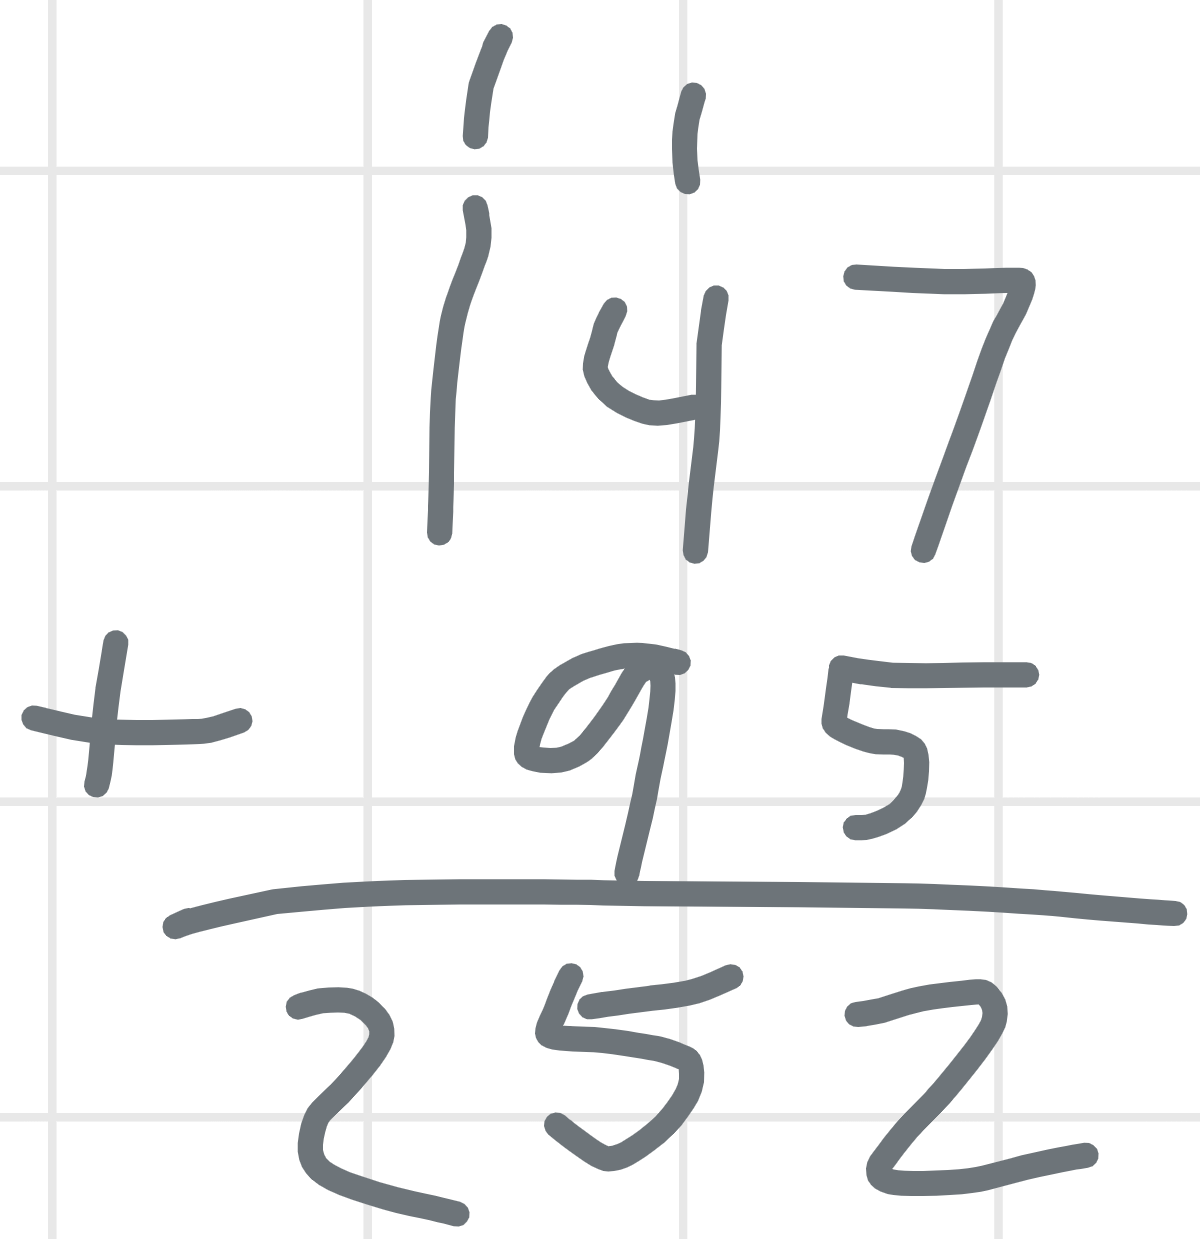 1 1
147
+ 95
252